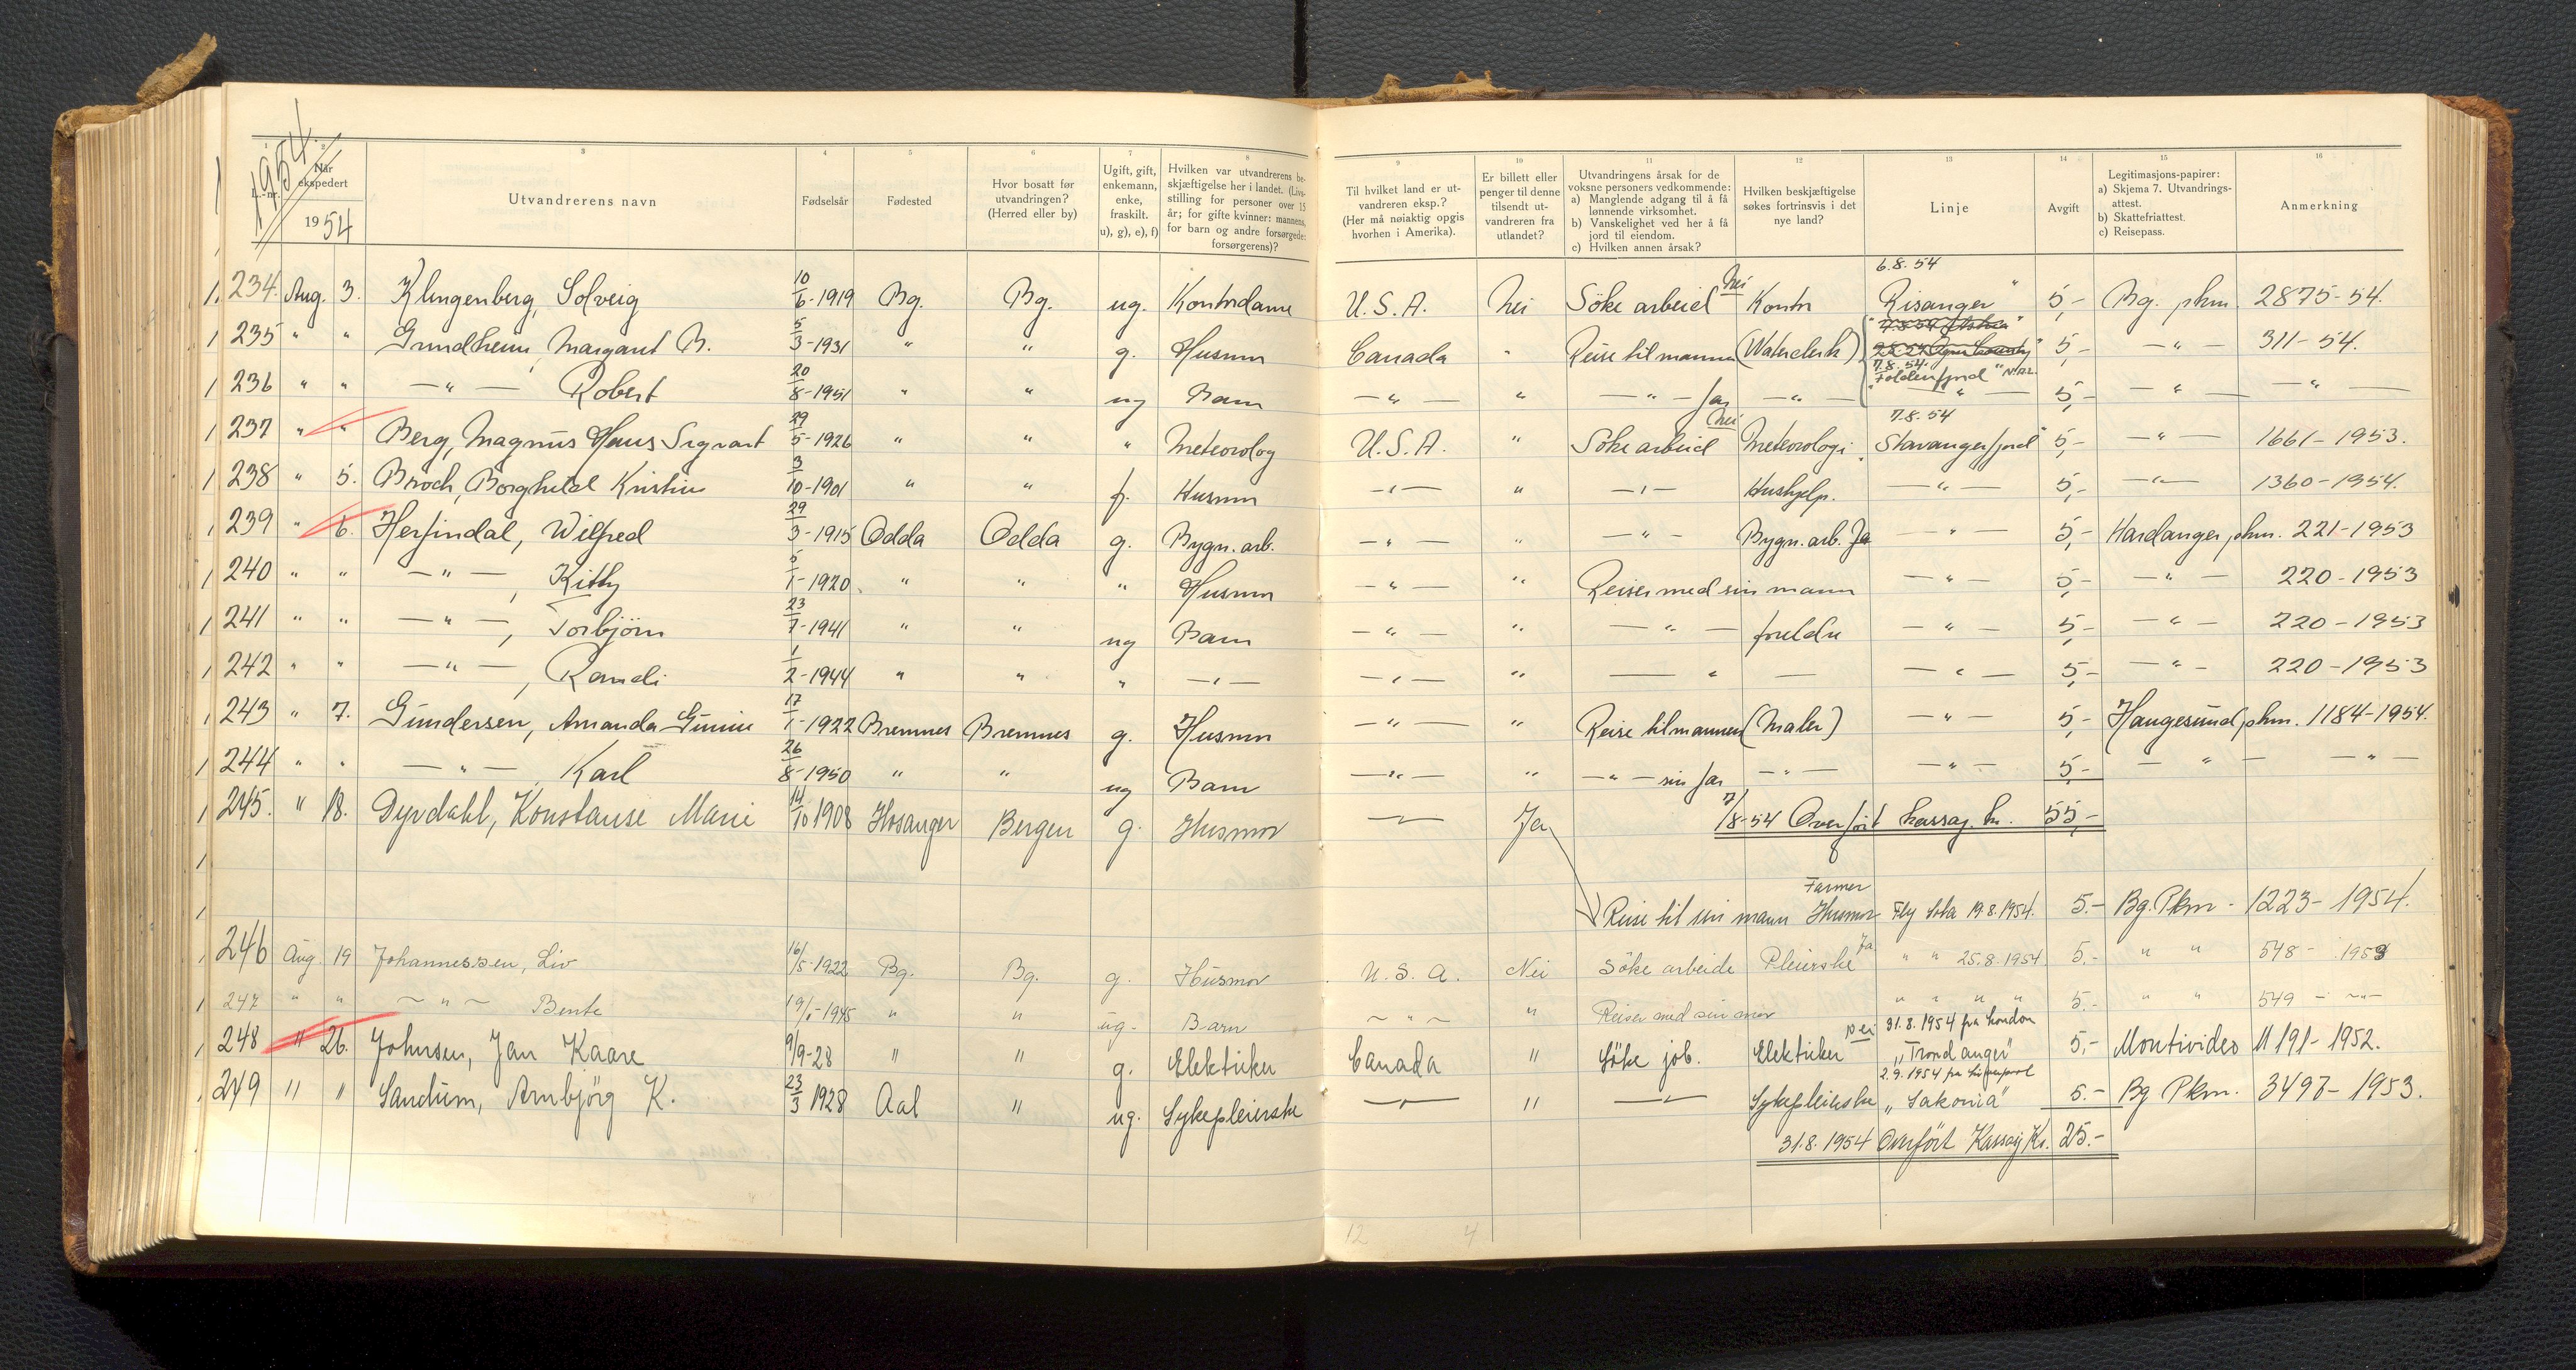 1954
1
2
Når ekspedert
1954
3
Utvandrerens navn
4
Fødselsår
5
Fødested
6
Hvor bosatt før utvandringen? (Herred eller by)
7
Ugift, gift, enkemann, enke, fraskilt. u), g), e), f)
8
Hvilken var utvandrerens beskjæftigelse her i landet. (Livsstilling for personer over 15 år; for gifte kvinner: mannens, for barn og andre forsørgede: forsørgerens)?
9
Til hvilket land er utvandreren eksp.? (Her må nøiaktig opgis hvorhen i Amerika).
10
Er billett eller penger til denne tilsendt utvandreren fra utlandet?
11
Utvandringens årsak for de voksne personers vedkommende:
a) Manglende adgang til å få lønnende virksomhet.
b) Vanskelighet ved her å få jord til eiendom.
c) Hvilken annen årsak?
12
Hvilken beskjæftigelse søkes fortrinsvis i det nye land?
13
Linje
14
Avgift
15
Legitimasjons-papirer:
a) Skjema 7. Utvandringsattest.
b) Skattefriattest.
c) Reisepass.
16
Anmerkning
6.8.54
1. 234. Aug. 3. Klingenberg, Solveig 10/6-1919 Bg. Bg. ug. Kontordame U.S.A. Nei Söke arbeid Nei Kontor "Risanger" 5,- Bg. pkm 2875-54.
1 235 " " Grundheim, Margaret B. 5/3-1931 " " g. Husmor Canada " Reise til mannen (Waterclerk) 5,- —"— 311-54.
7.8.54.
1 236 " " —"— Robert 20/8-1951 " " ug Barn —"— " —"— far —"— "Foldenfjord" N.A.L. —"— 5,- —"— —"—
7.8.54
1 237 " " Berg, Magnus Hans Sigvart 29/5-1926 " " " Meteorolog U.S.A. " Söke arbeid Nei Meteorologi "Stavangerfjord" 5,- —"— 1661-1953.
1 238 " 5. Broch, Borghild Kristine 3/10-1901 " " f. Husmor —"— " —"— Hushjelp. —"— 5,- —"— 1360-1954.
1 239 " 6. Herfindal, Wilfred 29/3-1915 Odda Odda g. Bygn. arb. —"— " —"— Bygn. arb. Ja —"— 5,- Hardanger pkm. 221-1953
1 240 " " —"—, Kitty 5/1-1920. " " " Husmor —"— " Reiser med sin mann —"— 5,- —"— 220-1953
1 241 " " —"—, Torbjörn 23/7-1941 " " ug Barn —"— " —"— foreldre —"— 5,- —"— 220-1953
1 242 " " —"—, Randi 1/2-1944 " " " —"— —"— " —"— —"— 5,- —"— 220-1953
1 243 " 7. Gundersen, Amanda 17/1-1922 Bremnes Bremnes g. Husmor —"— " Reise til mannen (Maler) —"— 5,- Haugesund pkm. 1184-1954.
1 244 " " —"—, Karl 26/8-1950 " " ug Barn —"— " —"— sin far —"— —"— 5,- —"— —"—
1 245. " 18. Dyrdahl, Konstanse Marie 14/10 1908 Hosanger Bergen g. Husmor —"— Ja
7/8-54 Overfört kassaj. kr. 55,-
1
Farmer
1 Reise til sin mann Husmor Fly Sola 19.8.1954. 5.- Bg. Pkm - 1223-1954.
1 246 Aug. 19 Johannessen, Liv 16/5-1922 Bg. Bg. g. Husmor U.S.A. Nei Söke arbeide Pleierske Ja " " 25.8.1954 5.- " " 548-1953
1 247 " " ~"~ Bente 19/1-1945 " " ug. Barn ~"~ " Reiser med sin mor " " " " 5.- " " 549 - ~"~
31.8.1954 fra London
1 248 " 26. Johnsen, Jan Kaare 9/9-28 " " g. Elektriker Canada " Söke job. Elektriker Nei "Trondanger" 5,- Montivideo M 191-1952.
2.9.1954 fra Liverpool
1 249 " " Sandum, Arnbjörg K. 23/3 1928 Aal " ug. Sykepleierske —"— " —"— Sykepleierske "Saxonia" 5.- Bg Pkm. 3497-1953.
31.8.1954 Overfört Kassaj Kr. 25.-
12 4